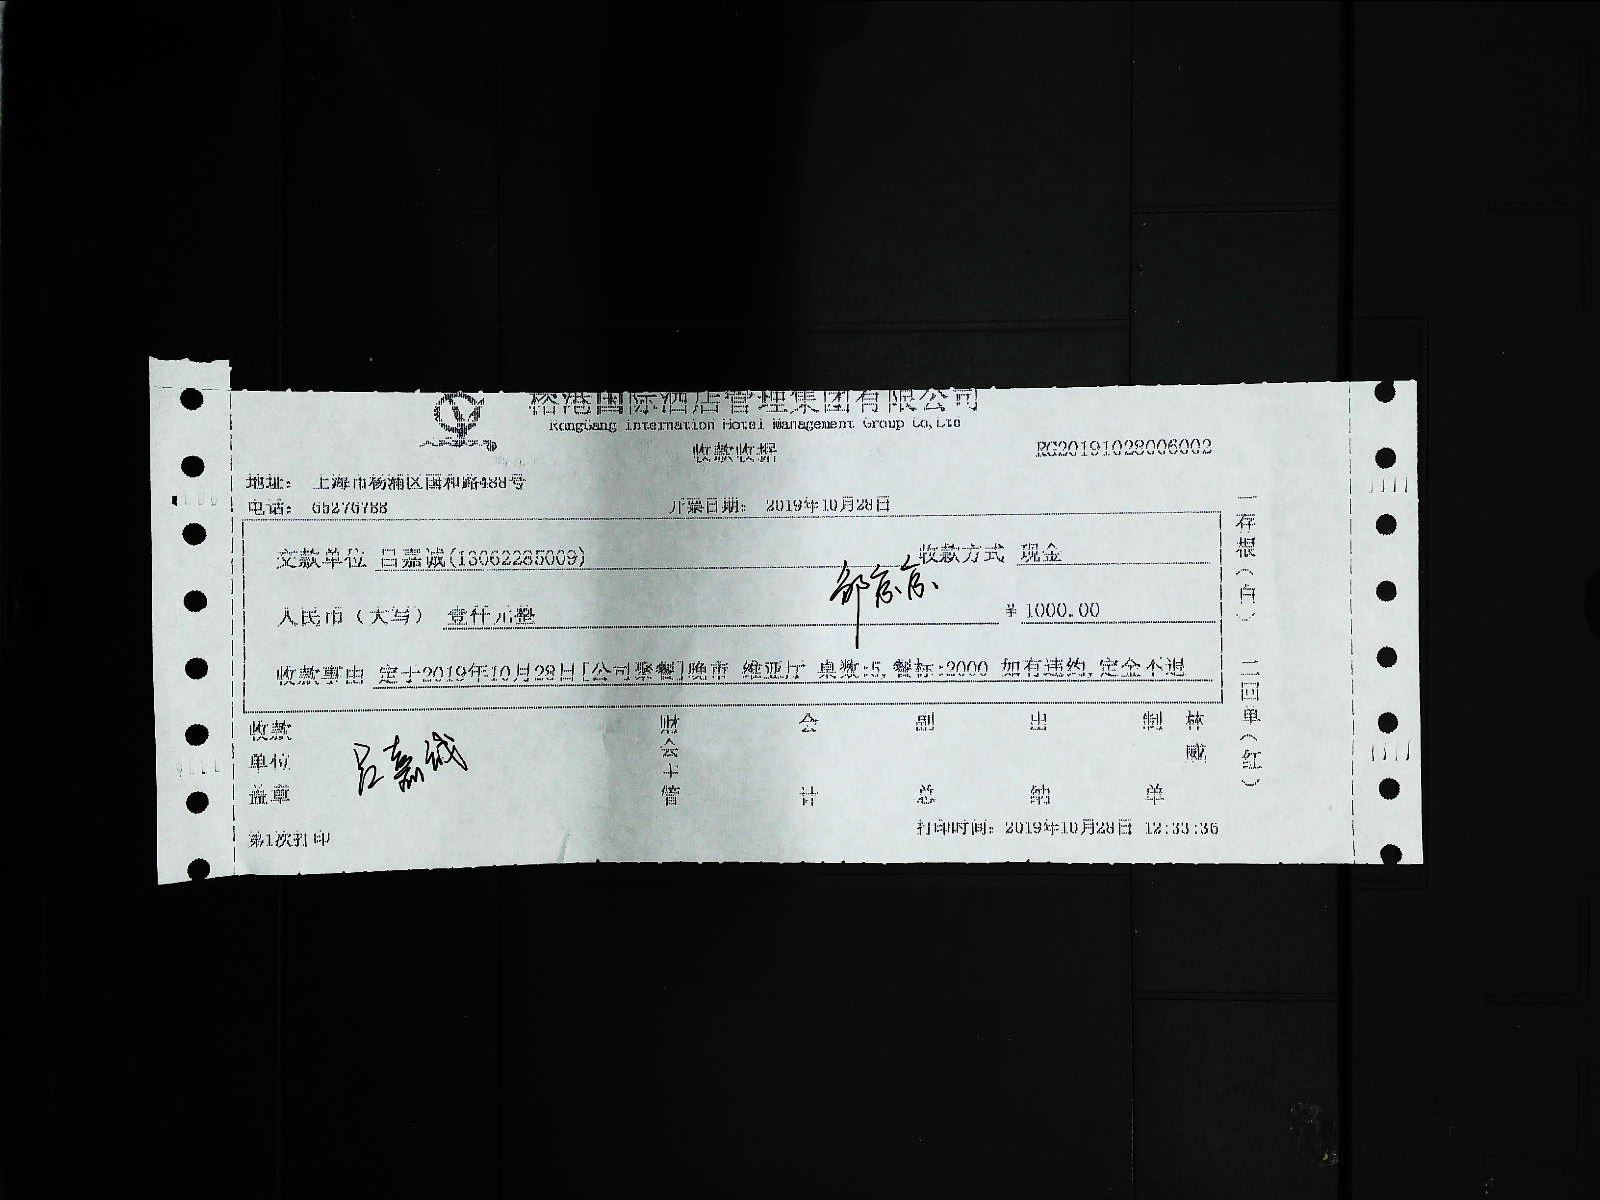 榕港国际酒店管理集团有限公司
RongGang Internation Hotel Management Group Co,Ltd
收款收据
RG20191028006002
地址： 上海市杨浦区国和路488号
电话： 65276788 开票日期： 2019年10月28日
交款单位 吕嘉诚(13062285009) 收款方式 现金
人民币（大写） 壹仟元整 ￥1000.00
收款事由 定于2019年10月28日[公司聚餐]晚市 维亚厅 桌数:5,餐标:2000 如有违约,定金不退
收款单位盖章 吕嘉诚 财会主管 会计 副总 出纳 制单 林威
第1次打印 打印时间：2019年10月28日 12:33:36
一存根（白） 二回单（红）